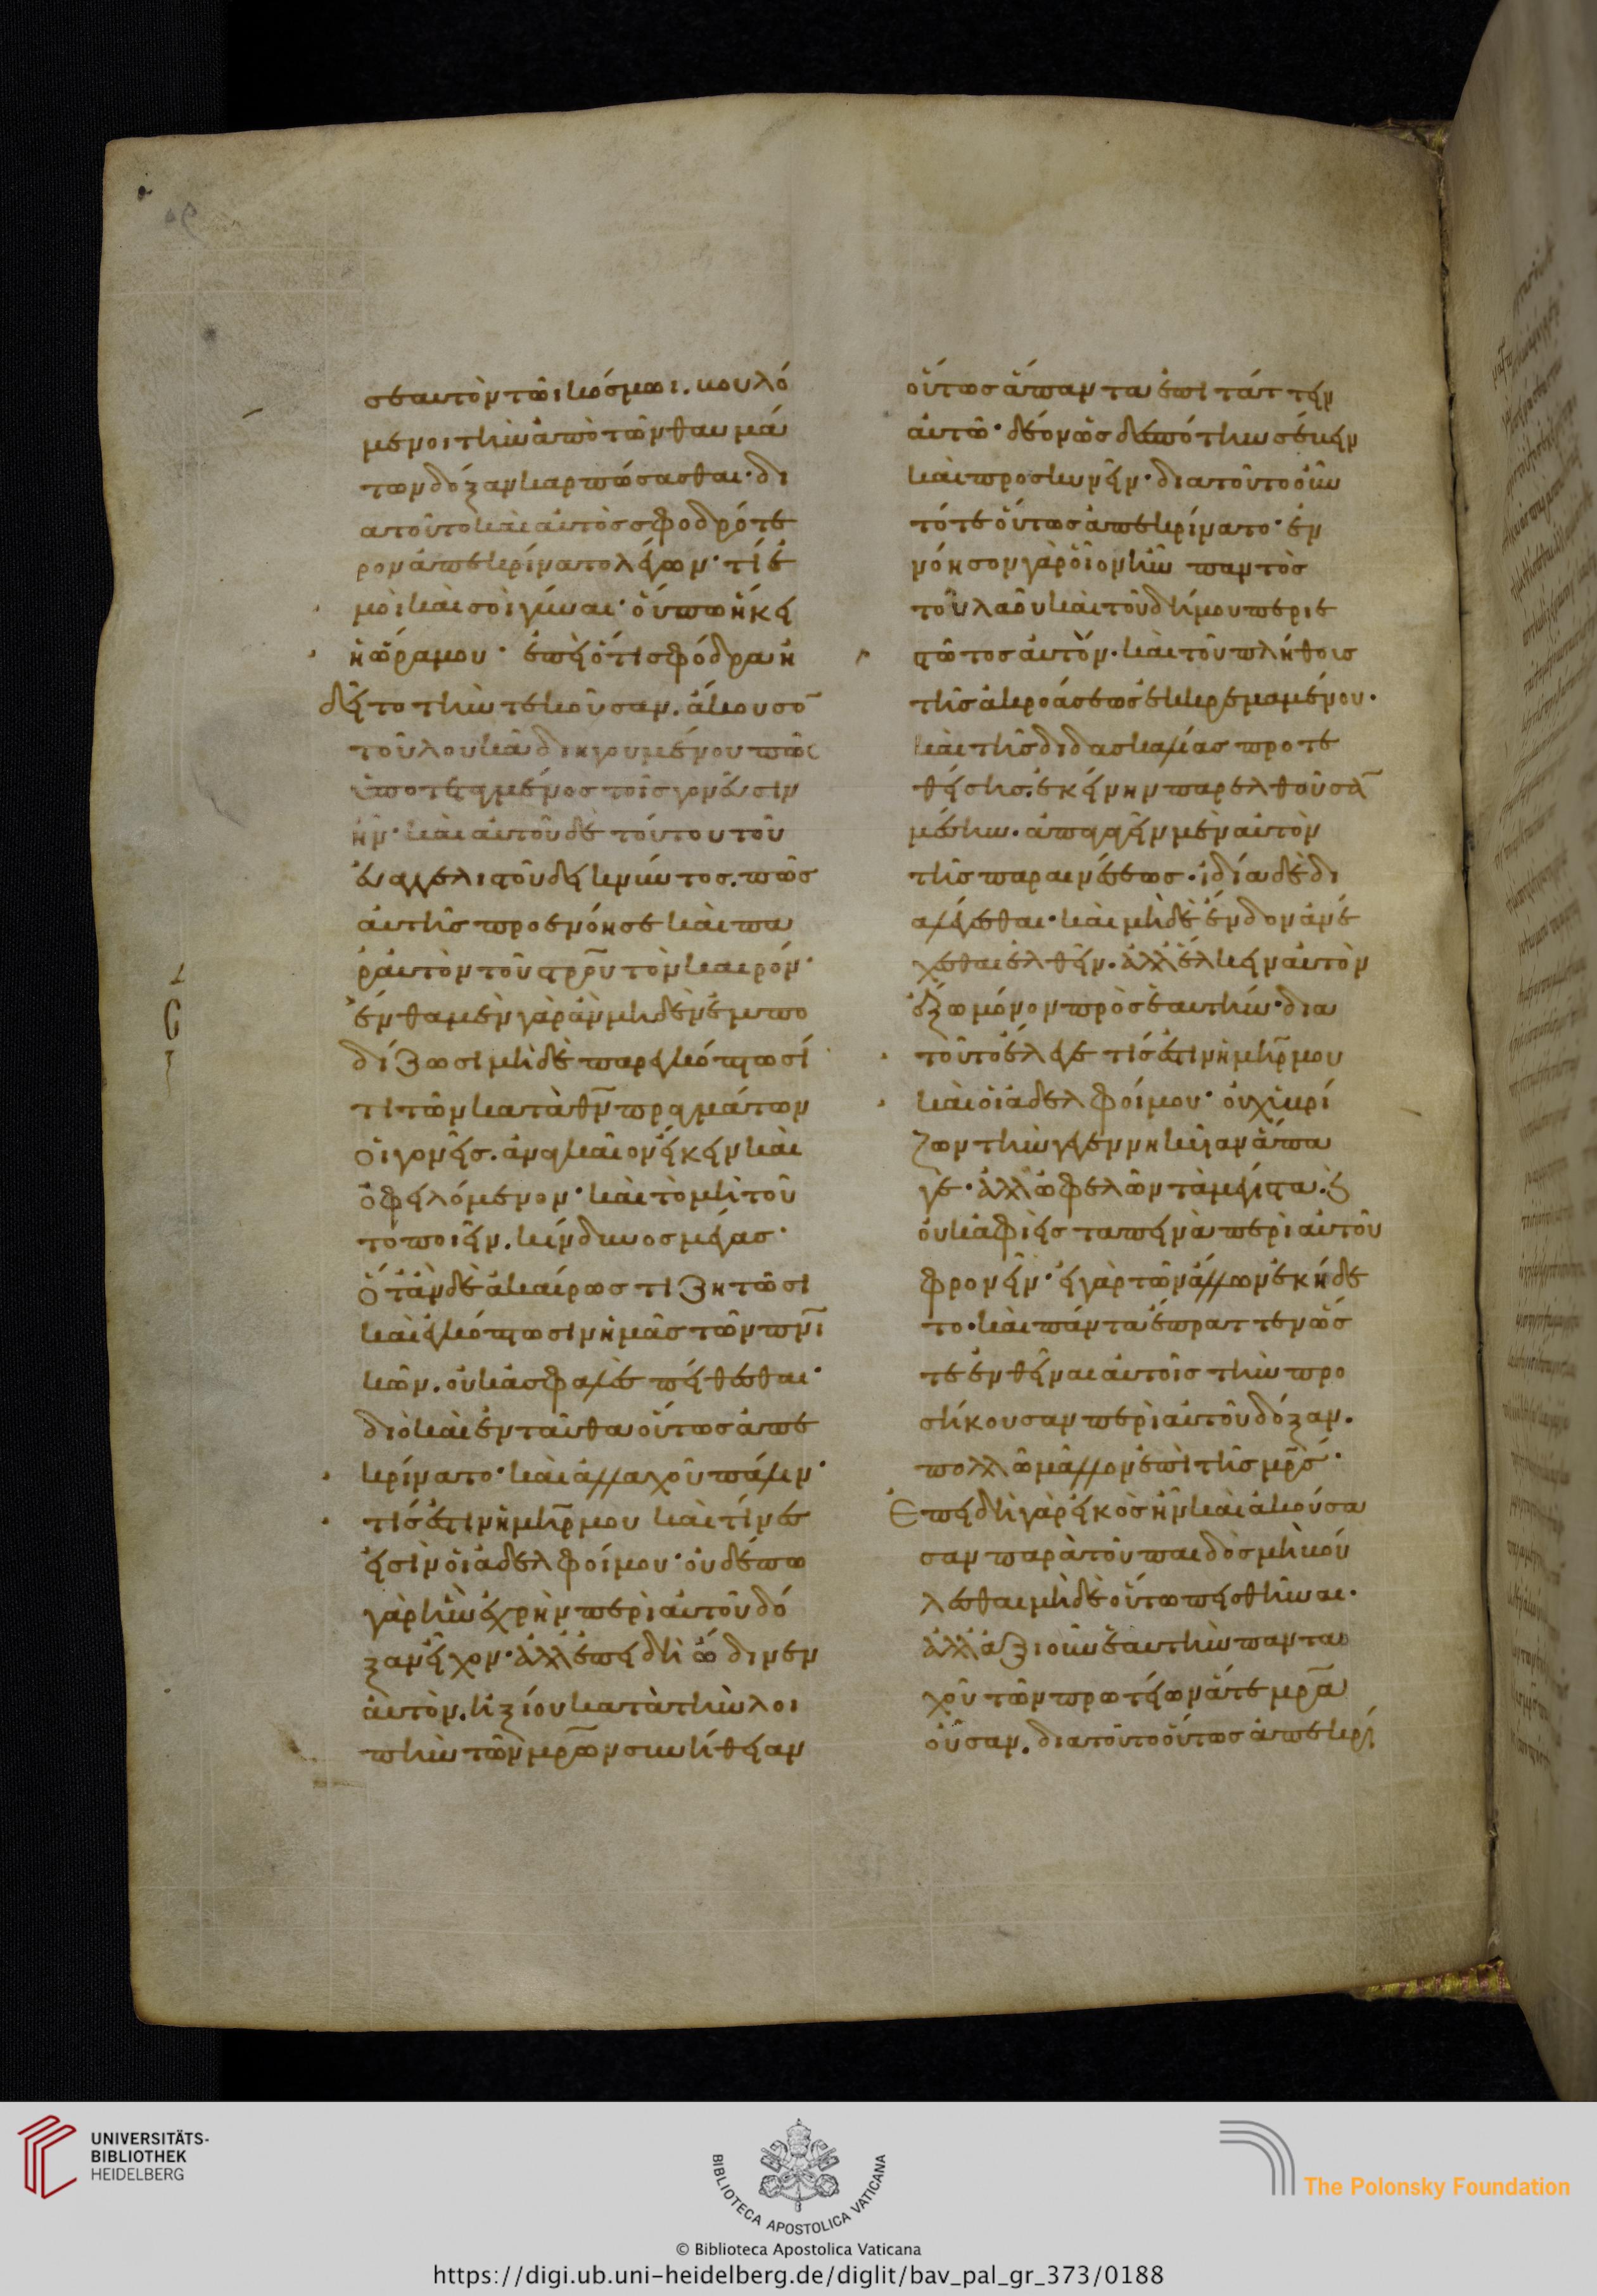 σεαυτὸν τῶι κόσμωι. βουλό
μενοι τὴν ἀπὸ τῶν θαυμά
των δόξαν καρπώσασθαι· δι
ατοῦτο καὶ αὐτὸς σφοδρότε
ρον ἀπεκρίνατο λέγων· τί ἐ
μοὶ καὶ σοὶ γύναι· οὔπω ἥκει
ἡ ὥρα μου· ἐπεὶ ὅτι σφόδρα ἠ
δεῖτο τὴν τεκοῦσαν. ἄκουσο̅
τοῦ λουκᾶ διηγουμένου πῶς
ὑποτεταγμένος τοῖς γονεῦσιν
ἦν· καὶ αὐτοῦ δὲ τούτου τοῦ
εὐαγγελιστοῦ δεικνύντος. πῶς
αὐτῆς προενόησε καὶ πα
ρ' αὐτὸν τοῦ στρ̅υ τὸν καιρόν·
ἔνθα μὲν γὰρ ἂν μηδὲν ἐμπο
δίζωσι μηδὲ παρεγκόπτωσί
τι τῶν κατὰ θν̅ πραγμάτων
οἱ γονεῖς. ἀναγκαῖον εἴκειν καὶ
ὀφειλόμενον· καὶ τὸ μὴ τοῦ
το ποιεῖν. κίνδυνος μέγας·
ὅταν δὲ ἀκαίρως τι ζητῶσι
καὶ ἐγκόπτωσιν ἡμᾶς τῶν πνι̅
κῶν. οὐκ ἀσφαλὲς πείθεσθαι·
διὸ καὶ ἐνταῦθα οὕτως ἀπε
κρίνατο· καὶ ἀλλαχοῦ πάλιν·
τίς ἐστιν ἡ μηρ̅ μου καὶ τίνες
εἰσὶν οἱ ἀδελφοί μου· οὐδέπω
γὰρ ἣν ἐχρῆν περὶ αὐτοῦ δό
ξαν εἶχον· ἀλλ' ἐπειδὴ ὤδινεν
αὐτὸν. ἠξίου κατὰ τὴν λοι
πὴν τῶν μρ̅ων συνήθειαν
οὕτως ἅπαντα ἐπιτάττειν
αὐτῶ· δέον ὡς δεσπότην σέβειν
καὶ προσκυνεῖν· διατοῦτο οὖν
τότε οὕτως ἀπεκρίνατο· ἐν
νόησον γὰρ οἷον ἦν παντὸς
τοῦ λαοῦ καὶ τοῦ δήμου περιε
στῶτος αὐτὸν. καὶ τοῦ πλήθους
τῆς ἀκροάσεως ἐκκρεμαμένου·
καὶ τῆς διδασκαλίας προτε
θείσης. ἐκείνην παρελθοῦσα̅
μέσην. ἀπάγειν μὲν αὐτὸν
τῆς παραινέσεως. ἰδία δὲ δι
αλέγεσθαι· καὶ μηδὲ ἔνδον ἀνέ
χεσθαι ἐλθεῖν. ἀλλ' ἕλκειν αὐτὸν
ἔξω μόνον πρὸς ἑαυτήν· δια
τοῦτο ἔλεγε τίς ἐστιν ἡ μηρ̅ μου
καὶ οἱ ἀδελφοί μου· οὐχ ὑβρί
ζων τὴν γεγεννηκυῖαν ἄπα
γε· ἀλλ' ὠφελῶν τὰ μέγιστα. ϗ
οὐκ ἀφιεὶς ταπεινὰ περὶ αὐτοῦ
φρονεῖν· εἰ γὰρ τῶν ἄλλων ἐκήδε
το. καὶ πάντα ἔπραττεν ὥσ
τε ἐνθεῖναι αὐτοῖς τὴν προ
σήκουσαν περὶ αὐτοῦ δόξαν.
πολλῶ μᾶλλον ἐπὶ τῆς μρ̅ς·
Ἐπειδὴ γὰρ εἰκὸς ἦν καὶ ἀκούσα
σαν παρὰ τοῦ παιδὸς μὴ βού
λεσθαι μηδὲ οὕτω πεισθῆναι.
ἀλλ' ἀξιοῦν ἑαυτὴν παντα
χοῦ τῶν πρωτείων ἅτε μρ̅α
οὖσαν. διατοῦτο οὕτως ἀπεκρί
UNIVERSITÄTS-
BIBLIOTHEK
HEIDELBERG
BIBLIOTECA APOSTOLICA VATICANA
The Polonsky Foundation
© Biblioteca Apostolica Vaticana
https://digi.ub.uni-heidelberg.de/diglit/bav_pal_gr_373/0188